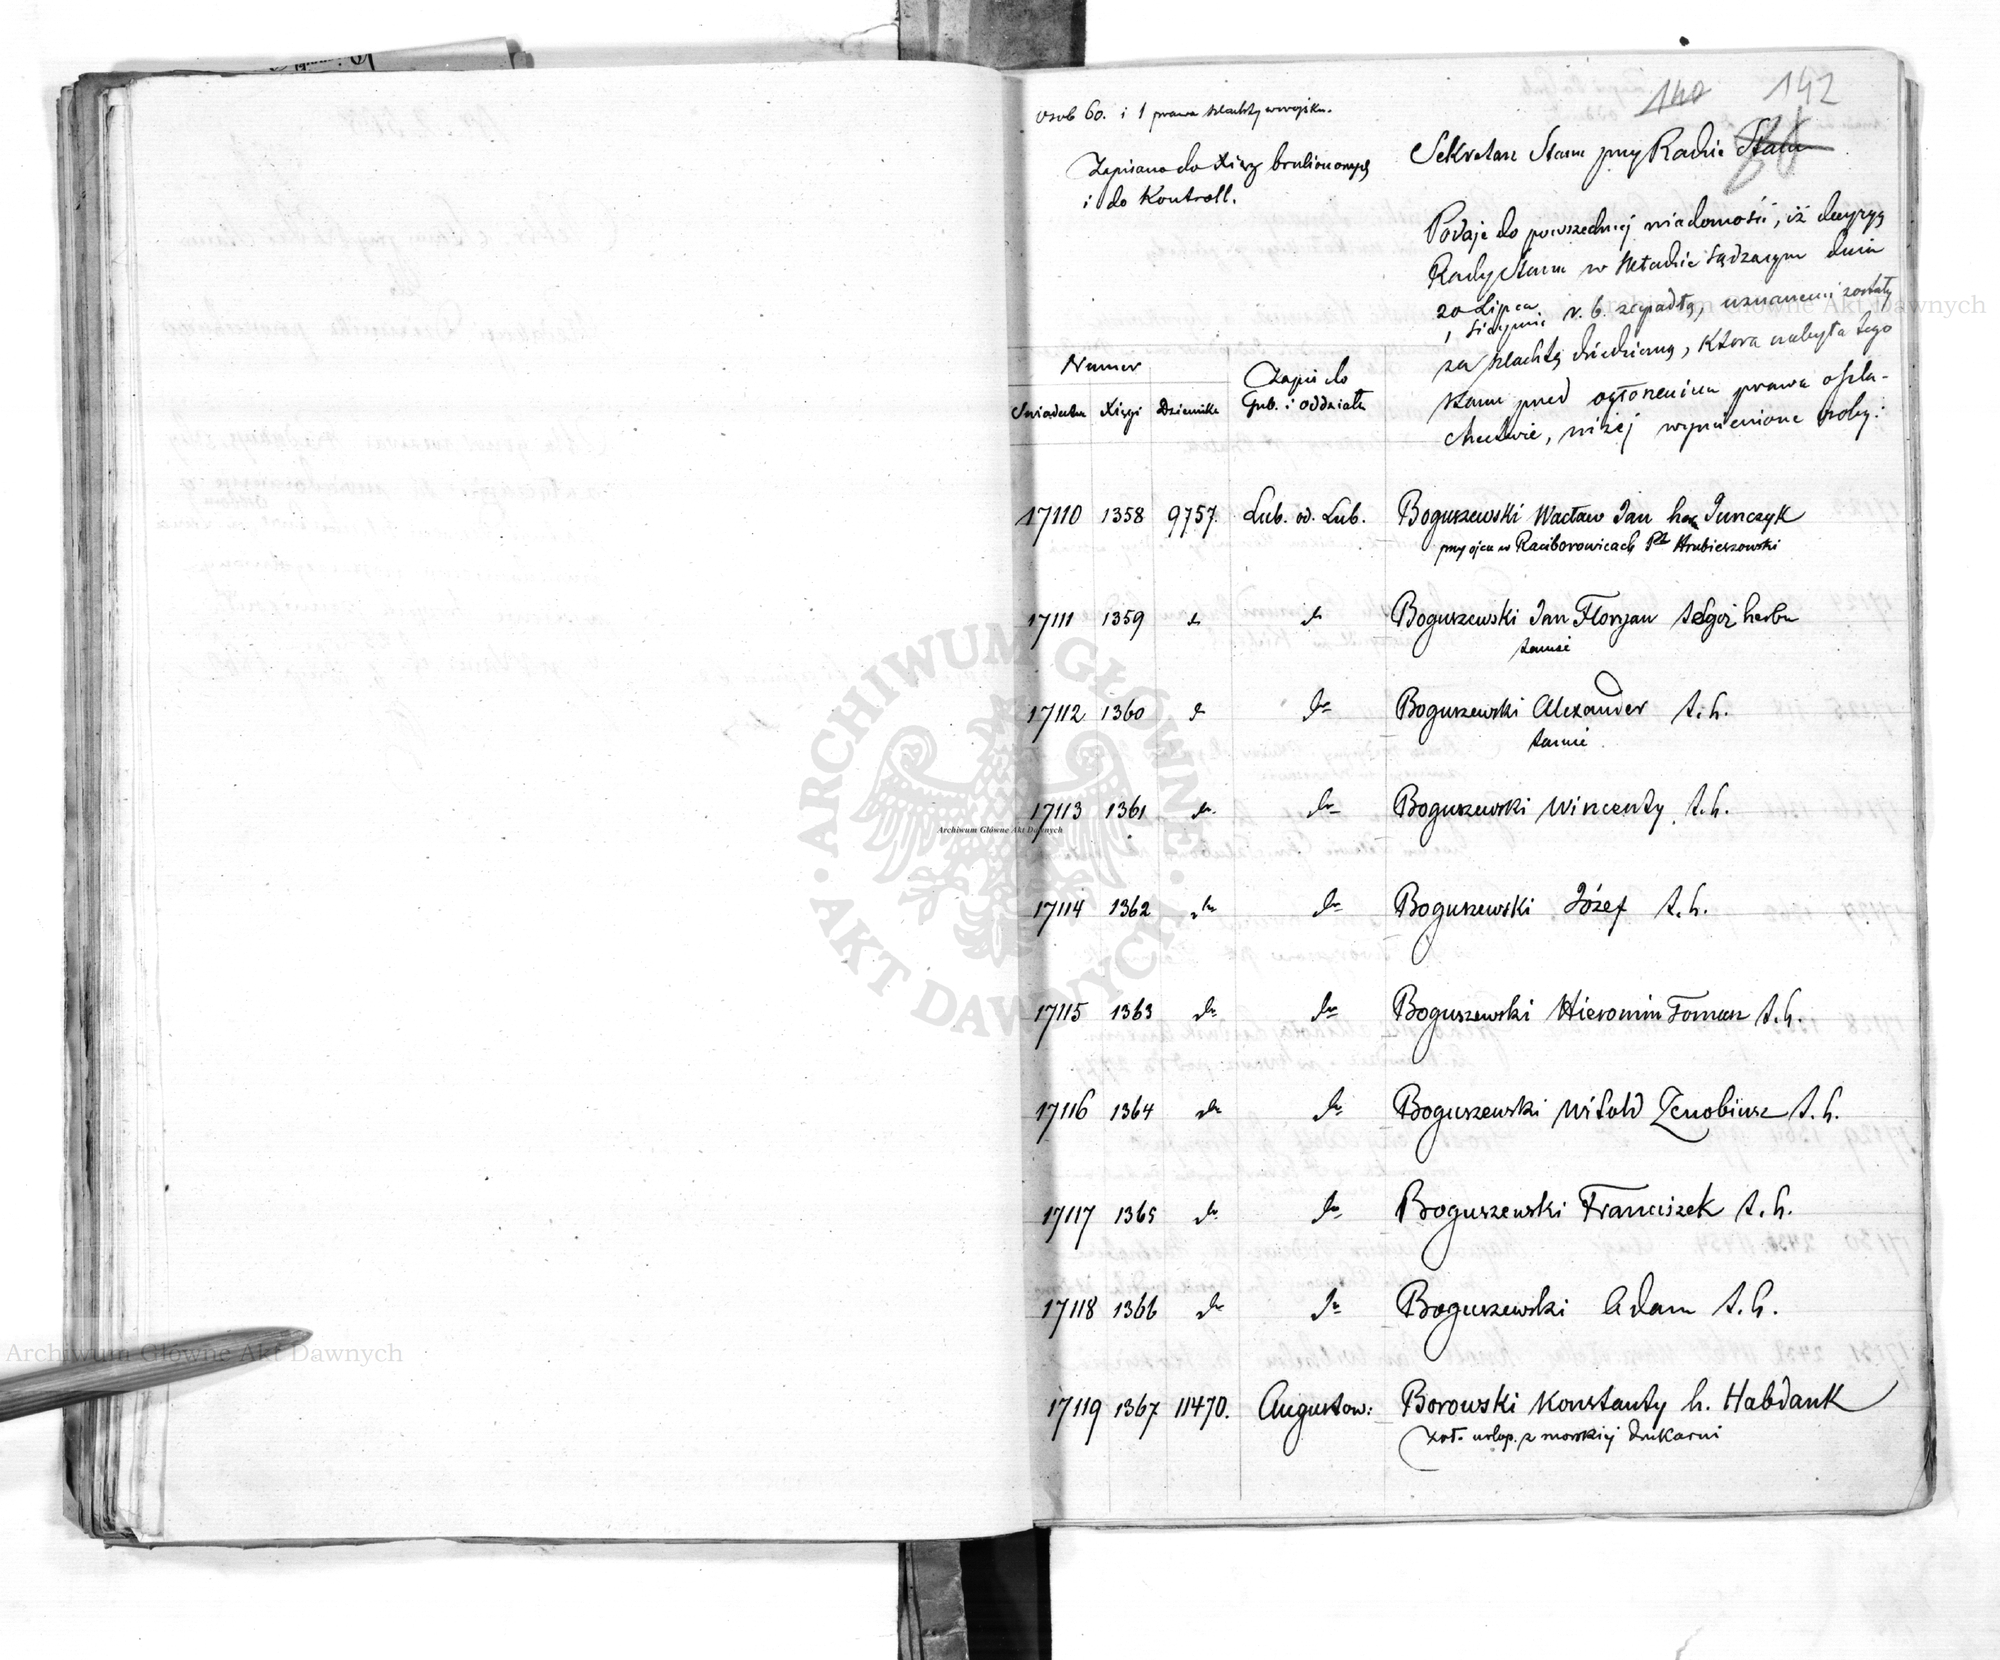 140 142
osob 60. i 1 prawa szlachty wwojsku.
Zapisano do Xiąg brulionowych
i do Kontroll.
Sekretarz Stanu przy Radzie Stanu
Podaje do powszechnej wiadomości, iż decyzyą
Rady Stanu w Składzie Sądzącym dnia
20 Lipca
1 Sierpnia r. b. zapadłą, uznanemi zostały
za szlachtę dziedziczną, która nabyła tego
stanu przed ogłoszeniem prawa o szla-
chectwie, niżej wymienione osoby:
Numer
Świadectwa Xięgi Dziennika
Zapis do
Gub. i oddziału
17110 1358 9757. Lub. od. Lub. Boguszewski Wacław Jan her Junczyk
przy ojcu w Raciborowicach Pt Hrubieszowski
17111 1359 do do Boguszewski Jan Floryan tegoż herbu
tamże
17112 1360 do do Boguszewski Alexander t. h.
tamże
17113 1361 do do Boguszewski Wincenty t. h.
17114 1362 do do Boguszewski Józef t. h.
17115 1363 do do Boguszewski Hieronim Tomasz t. h.
17116 1364 do do Boguszewski Witold Zenobiusz t. h.
17117 1365 do do Boguszewski Franciszek t. h.
17118 1366 do do Boguszewski Adam t. h.
17119 1367 11470. Augustow: Borowski Konstanty h. Habdank
drukarni
ARCHIWUM GŁÓWNE AKT DAWNYCH
Archiwum Główne Akt Dawnych
Archiwum Główne Akt Dawnych
Archiwum Główne Akt Dawnych